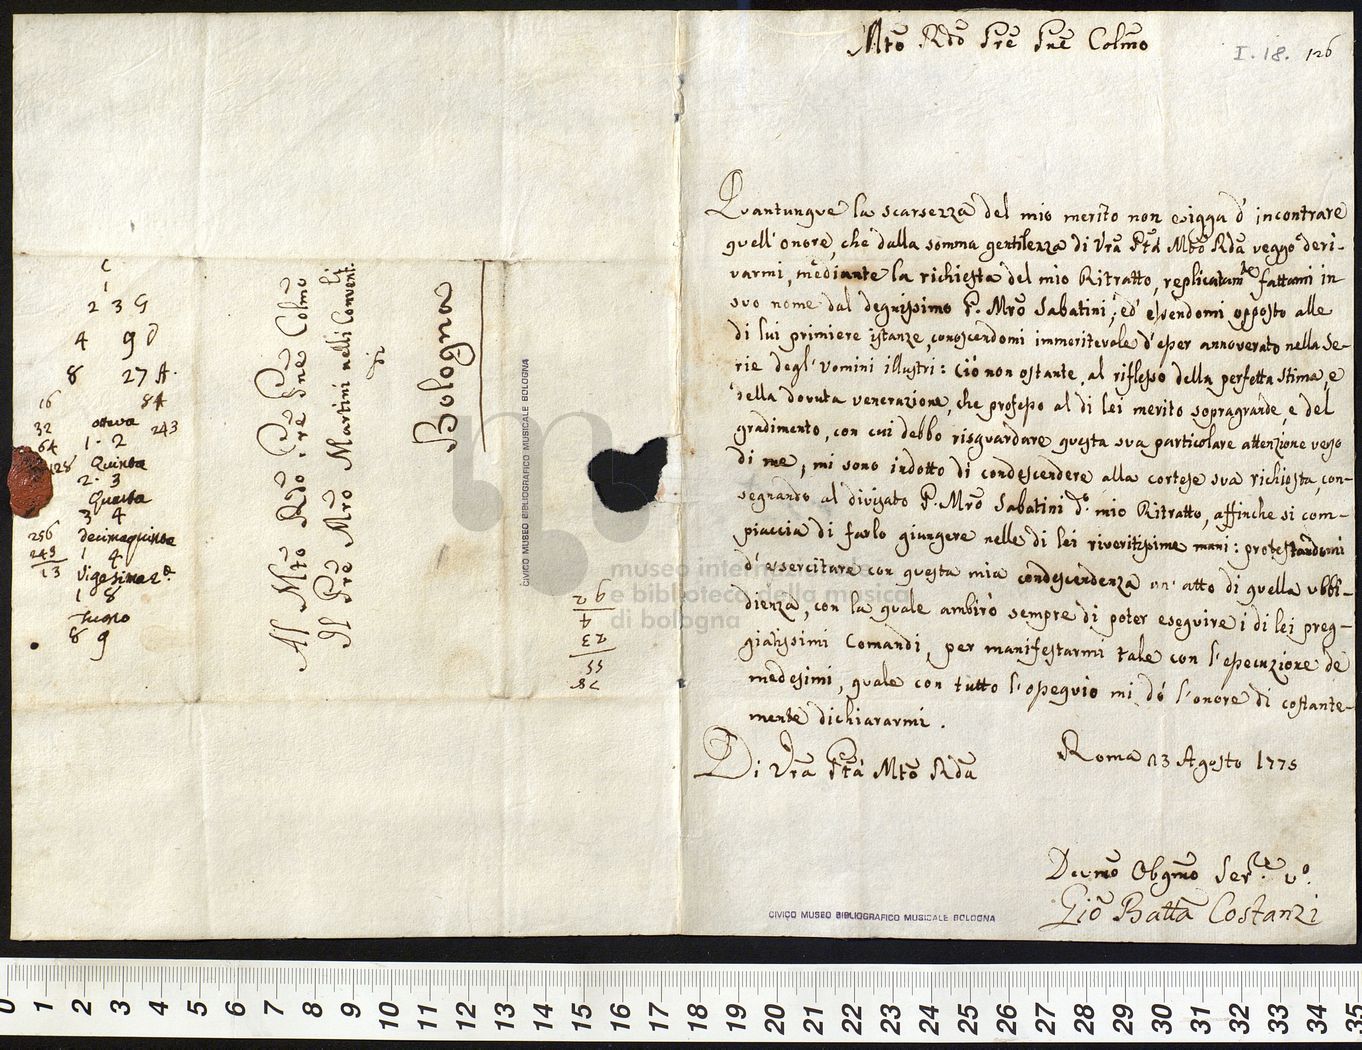 Mto Rdo Pre Pne Colmo
I. 18. 126
Quantunque la scarsezza del mio merito non esigga d'incontrare
quell'onore, che dalla somma gentilezza di Vra Ptà Mto Rda veggo deri-
varmi, mediante la richiesta del mio Ritratto, replicatamte fattami in
suo nome dal degnissimo P. Mro Sabatini; ed essendomi opposto alle
di lui primiere istanze, conoscendomi immeritevole d'esser annoverato nella Se-
rie degl'Uomini illustri: Ciò non ostante, al riflesso della perfetta stima, e
della dovuta venerazione, che professo al di lei merito sopragrande, e del
gradimento, con cui debbo risguardare questa sua particolare attenzione verso
di me, mi sono indotto di condescendere alla cortese sua richiesta, con-
segnando al divisato P. Mro Sabatini do mio Ritratto, affinche si com-
piaccia di farlo giungere nelle di lei riveritissime mani: protestandomi
d'esercitare con questa mia condescendenza un'atto di quella ubbi-
dienza, con la quale ambirò sempre di poter eseguire i di lei preg-
giatissimi Comandi, per manifestarmi tale con l'esecuzione de
medesimi, quale con tutto l'ossequio mi dò l'onore di costante-
mente dichiararmi.
Di Vra Ptà Mto Rda
Roma 13 Agosto 1775
Devmo Obgmo Serre vo.
Gio Batta Costanzi
CIVICO MUSEO BIBLIOGRAFICO MUSICALE BOLOGNA
Al Mto Rdo Pre Pne Colmo
Il Pre Mro Martini nelli Convent.li
di
Bologna
CIVICO MUSEO BIBLIOGRAFICO MUSICALE BOLOGNA
C
1
2 3 G
4 9 D
8 27 A.
16 81
32 ottava 243
64 1. 2
128 Quinta
2. 3
Quarta
3 4
256 decimaquinta
243 1 4
13 Vigesima 2a
1 8
Tuono
8 9
92
4
23
55
78
museo internazionale
e biblioteca della musica
di bologna
0 1 2 3 4 5 6 7 8 9 10 11 12 13 14 15 16 17 18 19 20 21 22 23 24 25 26 27 28 29 30 31 32 33 34 35